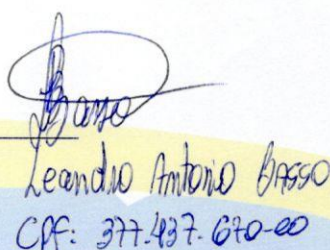 Basso
Leandro Antonio BASSO
CPF: 377.437.670-00